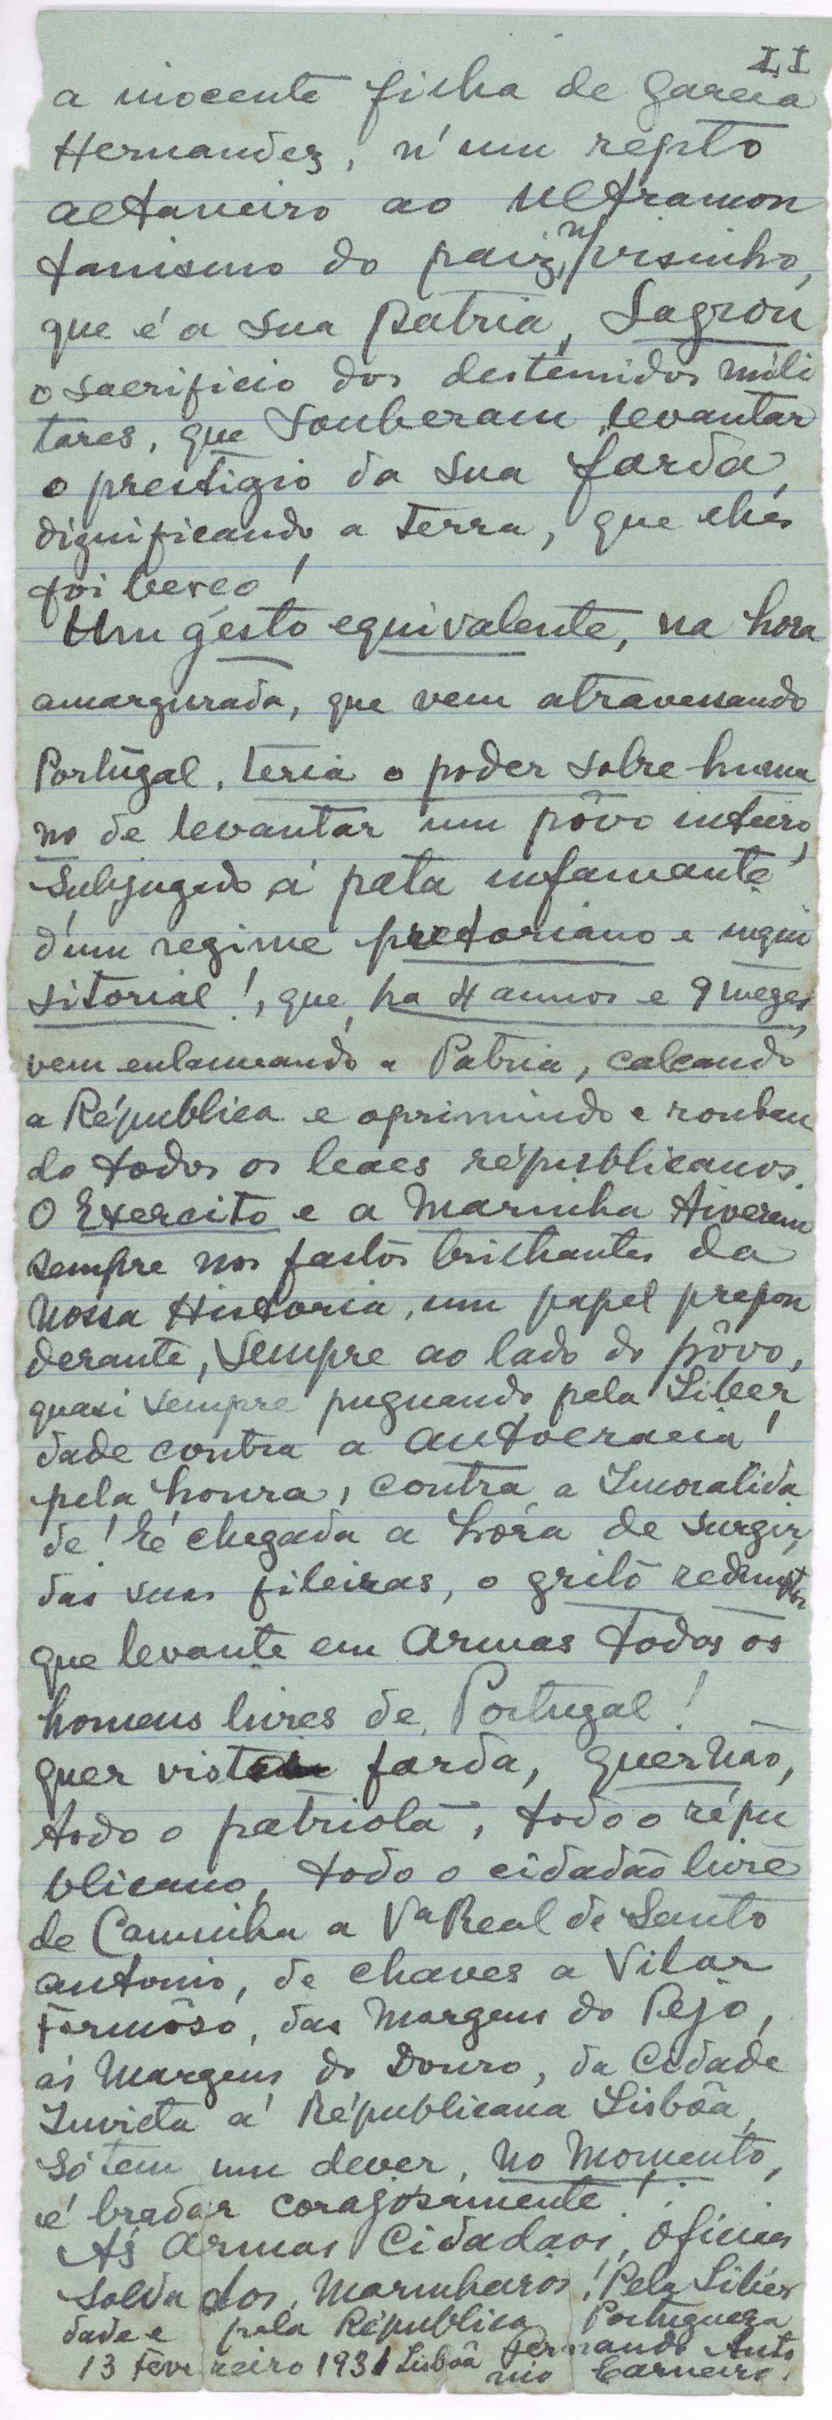 II
a inocente filha de Garcia
Hernandez, n'um repto
altaneiro ao ultramon
tanismo do paiz, n/visinho,
que é a sua patria, Sagrou
o sacrificio dos destemidos mili
tares, que souberam levantar
o prestigio da sua farda,
dignificando a terra, que lhes
foi berço!
Um gésto equivalente, na hora
amargurada, que vem atravessando
Portugal, teria o poder sobre-huma
no de levantar um pôvo inteiro,
subjugado á pata infamante
d'um regime pretoriano e inqui
sitorial!, que, ha 4 annos e 9 mezes,
vem enlameando a Patria, calcando
a Républica e oprimindo e rouban
do todos os leaes républicanos.
O Exercito e a Marinha tiveram
sempre nos fastos brilhantes da
Nossa Historia, um papel prepon
derante, sempre ao lado do pôvo,
quasi sempre pugnando pela Liber
dade contra a autocracia!
pela honra, contra a Imoralida
de! É chegada a hóra de surgir,
das suas fileiras, o grito redemptor
que levante em armas todos os
homens livres de Portugal!
quer vista farda, quer não,
todo o patriota, todo o répu
blicano, todo o cidadão livre
de Caminha a Vª Real de Santo
antonio, de chaves a Vilar
Formôso, das Margens do Tejo,
ás Margens do Douro, da Cidade
Invicta á Républicana Lisbôa,
só tem um dever, no momento,
é bradar corajosamente!:
Ás armas Cidadaos, Oficiaes
Soldados, Marinheiros! Pela Liber
dade e pela Républica Portugueza
13 Fevereiro 1931 Lisbôa Fernando Anto
nio Carneiro.